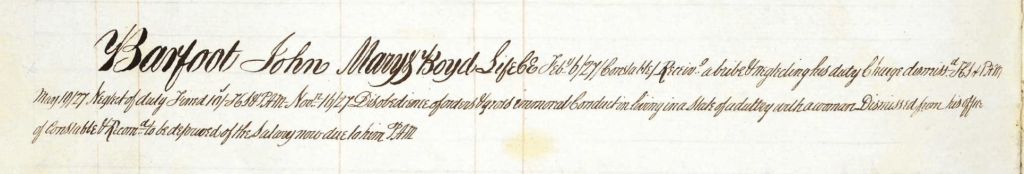 Barfoot John Mary & Boyd Life CE Feby 6/27 (Constable) Receivg a bribe & neglecting his duty Charge dismissd J.G.S & P.A.M.
May 19/27 Neglect of duty Fined 10/- P.A.M. Novr 16/27 Disobedience of orders & gross immoral Conduct in living in a state of adultery with a woman Dismissed from his office
of Constable & Recomd to be deprived of the Salary now due to him P.A.M